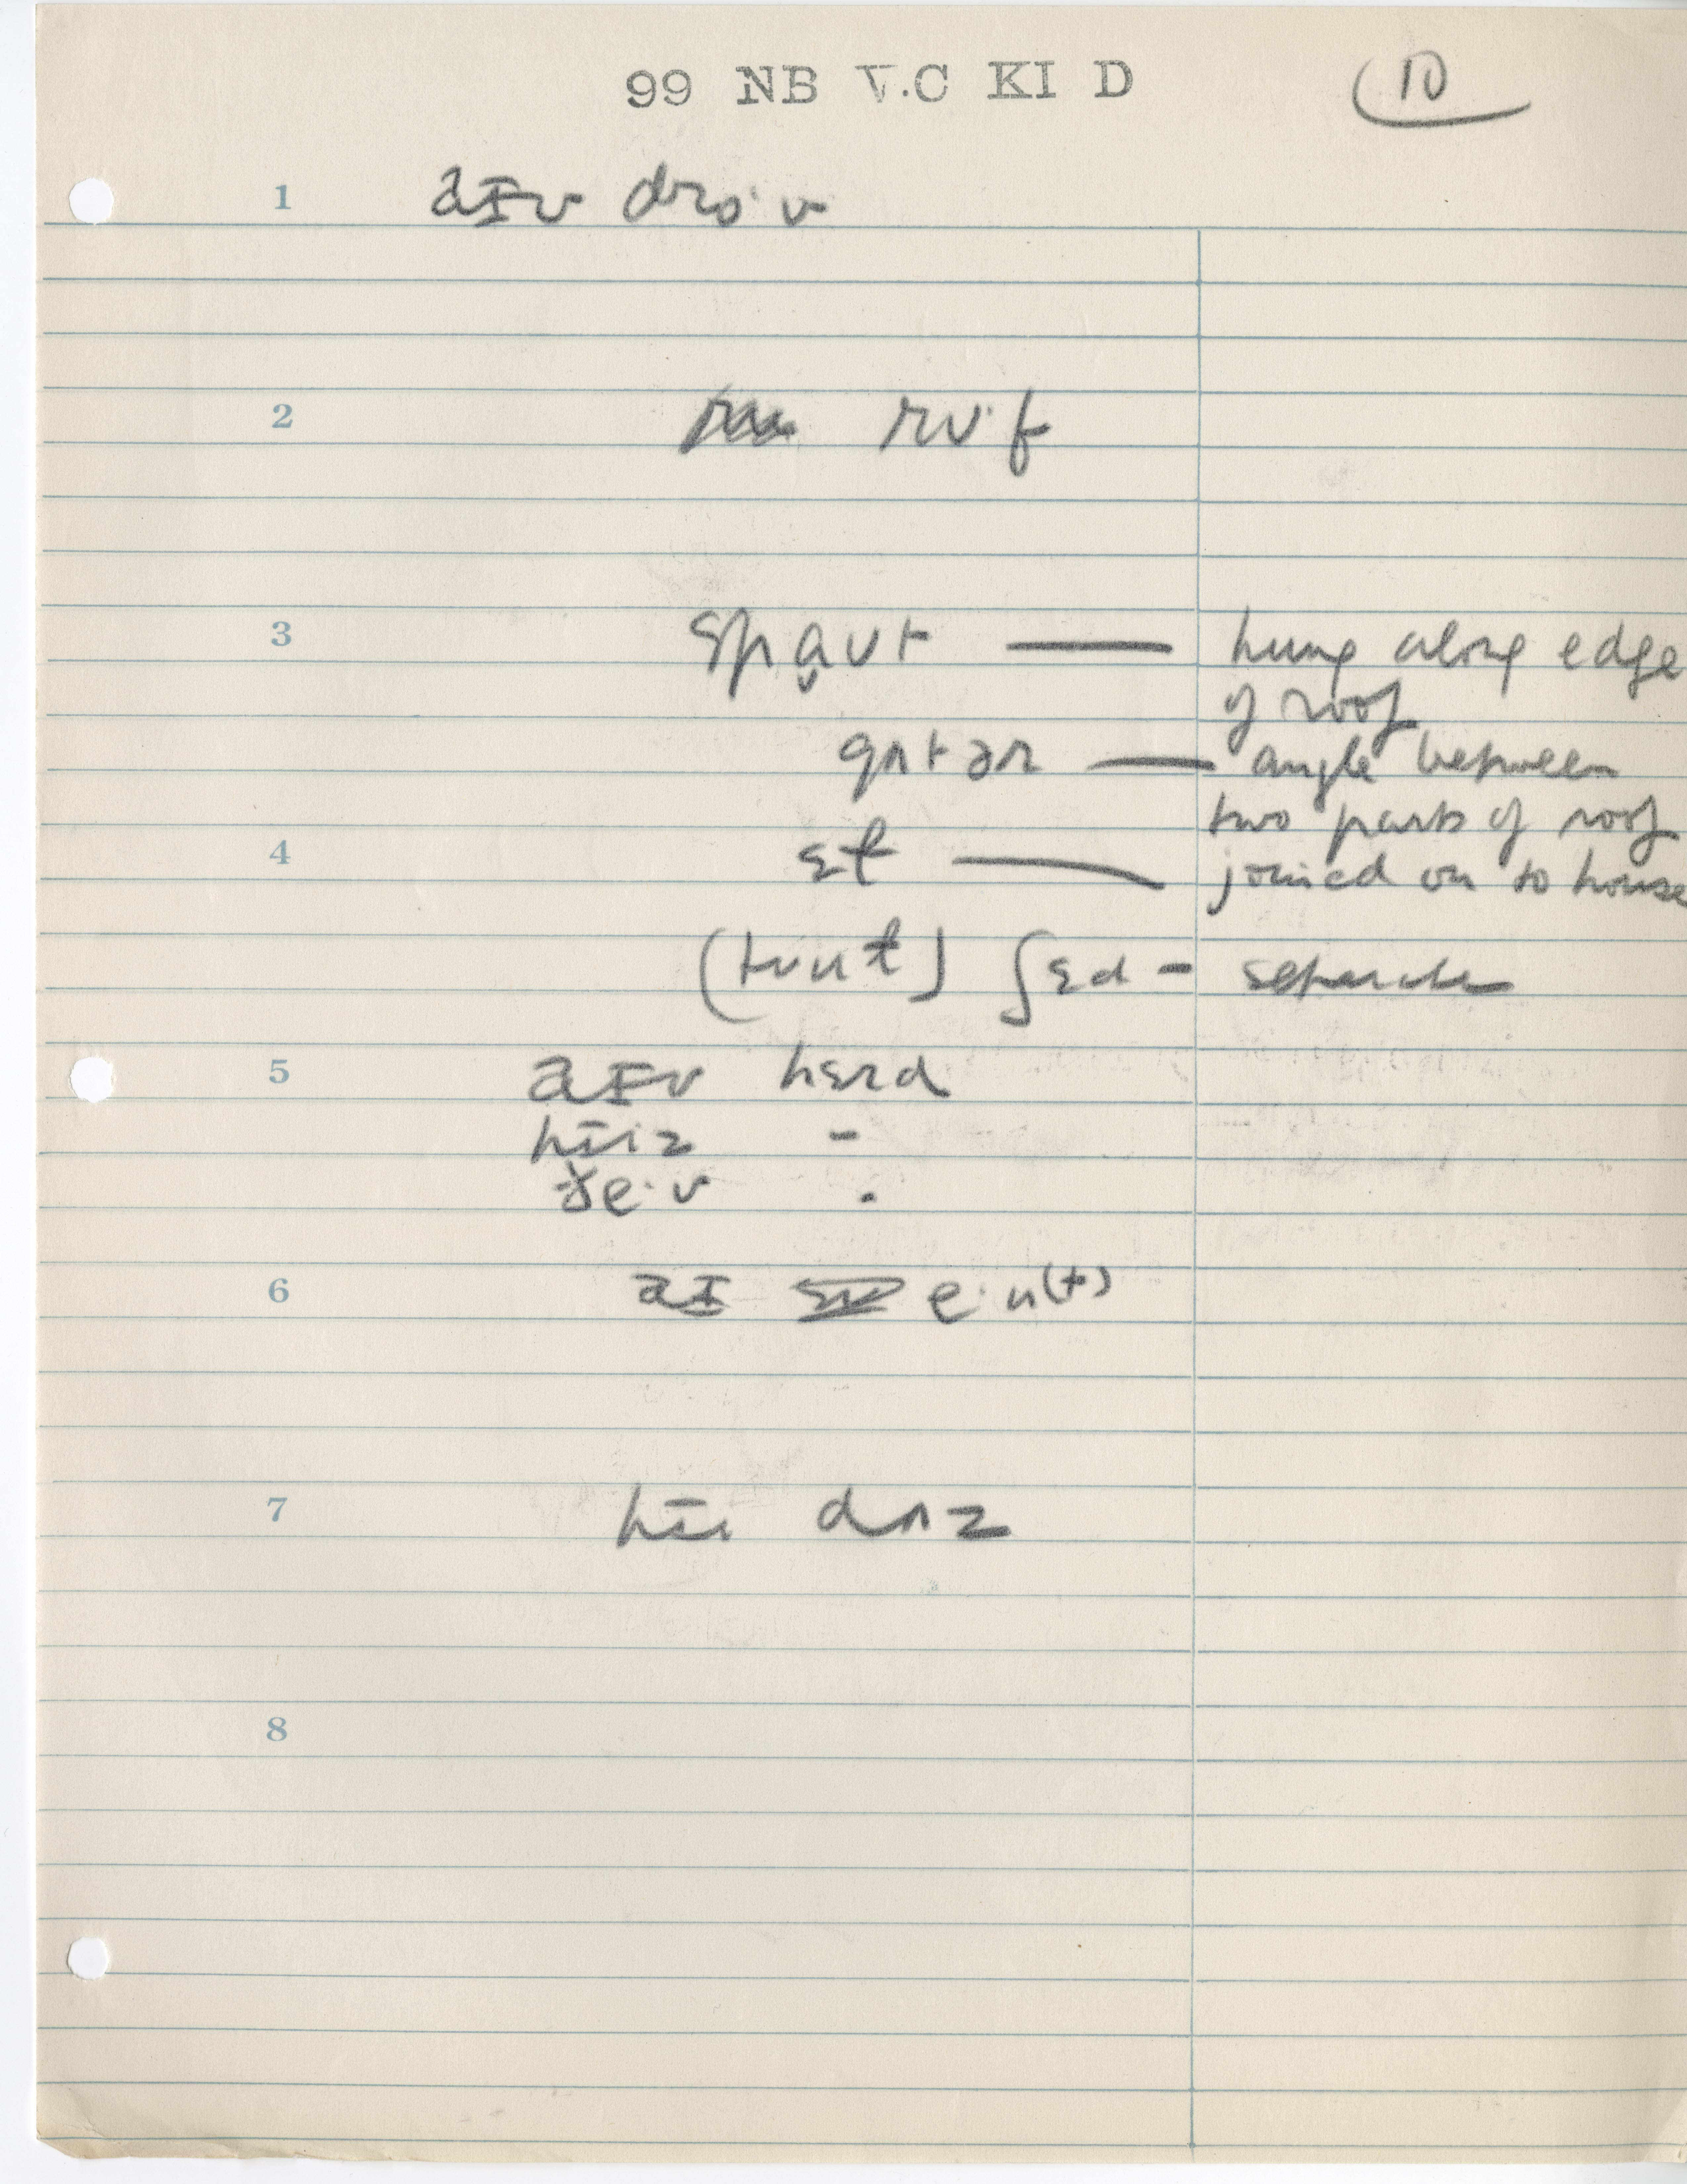 99 NB V.C KI D
10
1 aɪv dro·v
2 rʊ·f
3 spa̬ʊt — hung along edge
of roof
gʌtər — angle between
two parts of roof
4 ɛɫ — joined on to house
(tuɫ) ʃɛd – separate
5 aɪv hɜrd
hiiz –
ðe·v .
6 aɪ e·n(t)
7 hii dʌz
8